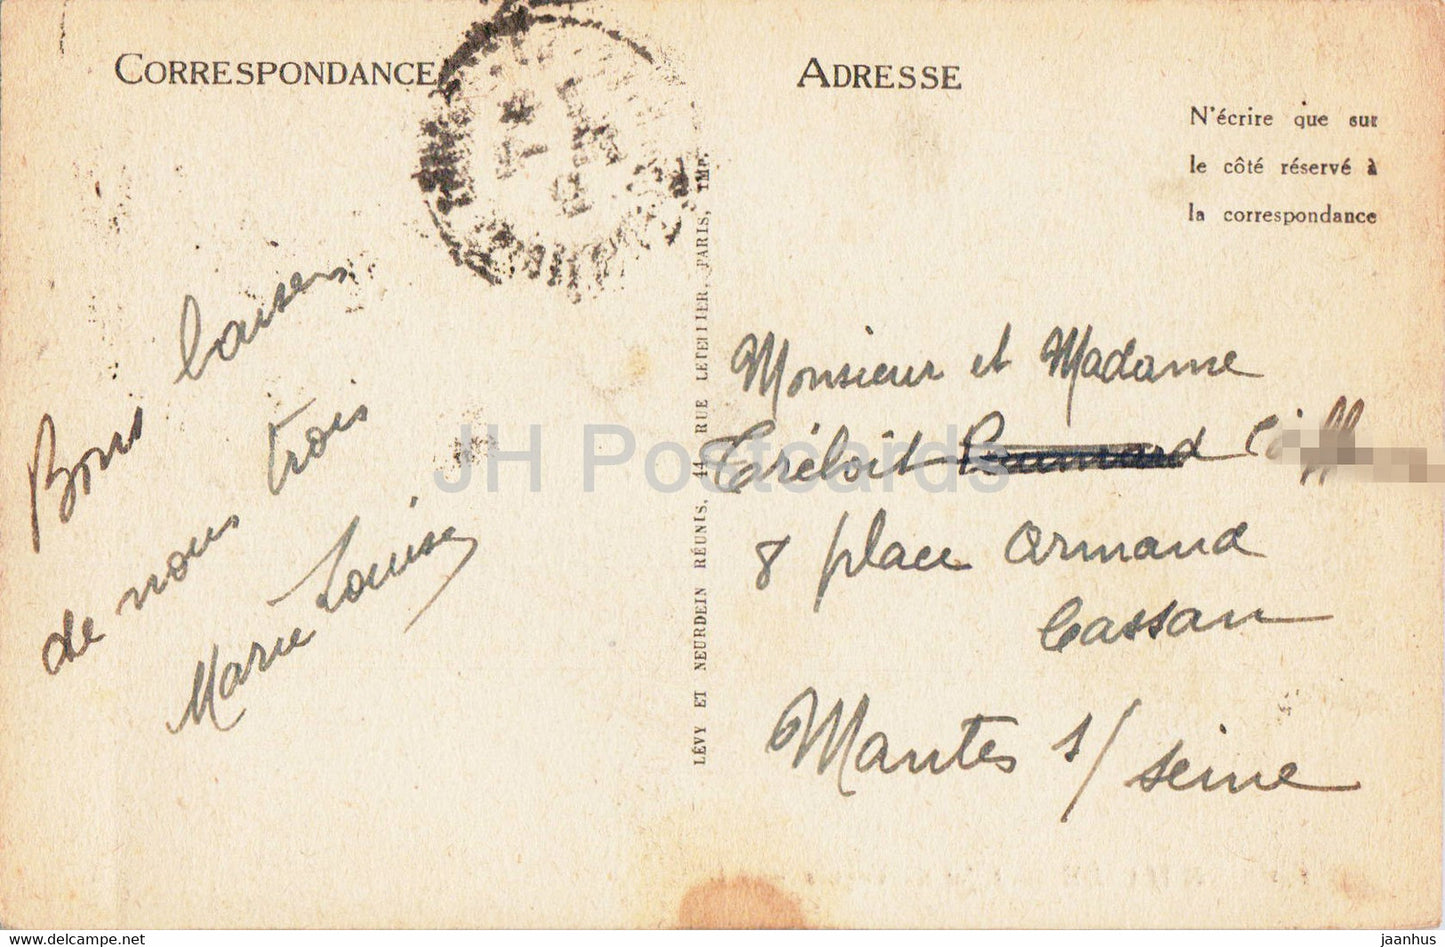 CORRESPONDANCE
ADRESSE
N'écrire que sur
le côté réservé à
la correspondance
Bons baisers
de nous trois
Marie Louise
LÉVY ET NEURDEIN RÉUNIS, 44, RUE LETELLIER, PARIS, IMP.
Monsieur et Madame
Tréloit
8 place Armand
Cassan
Mantes s/ seine
JH Postcards
delcampe.net
jaanhus